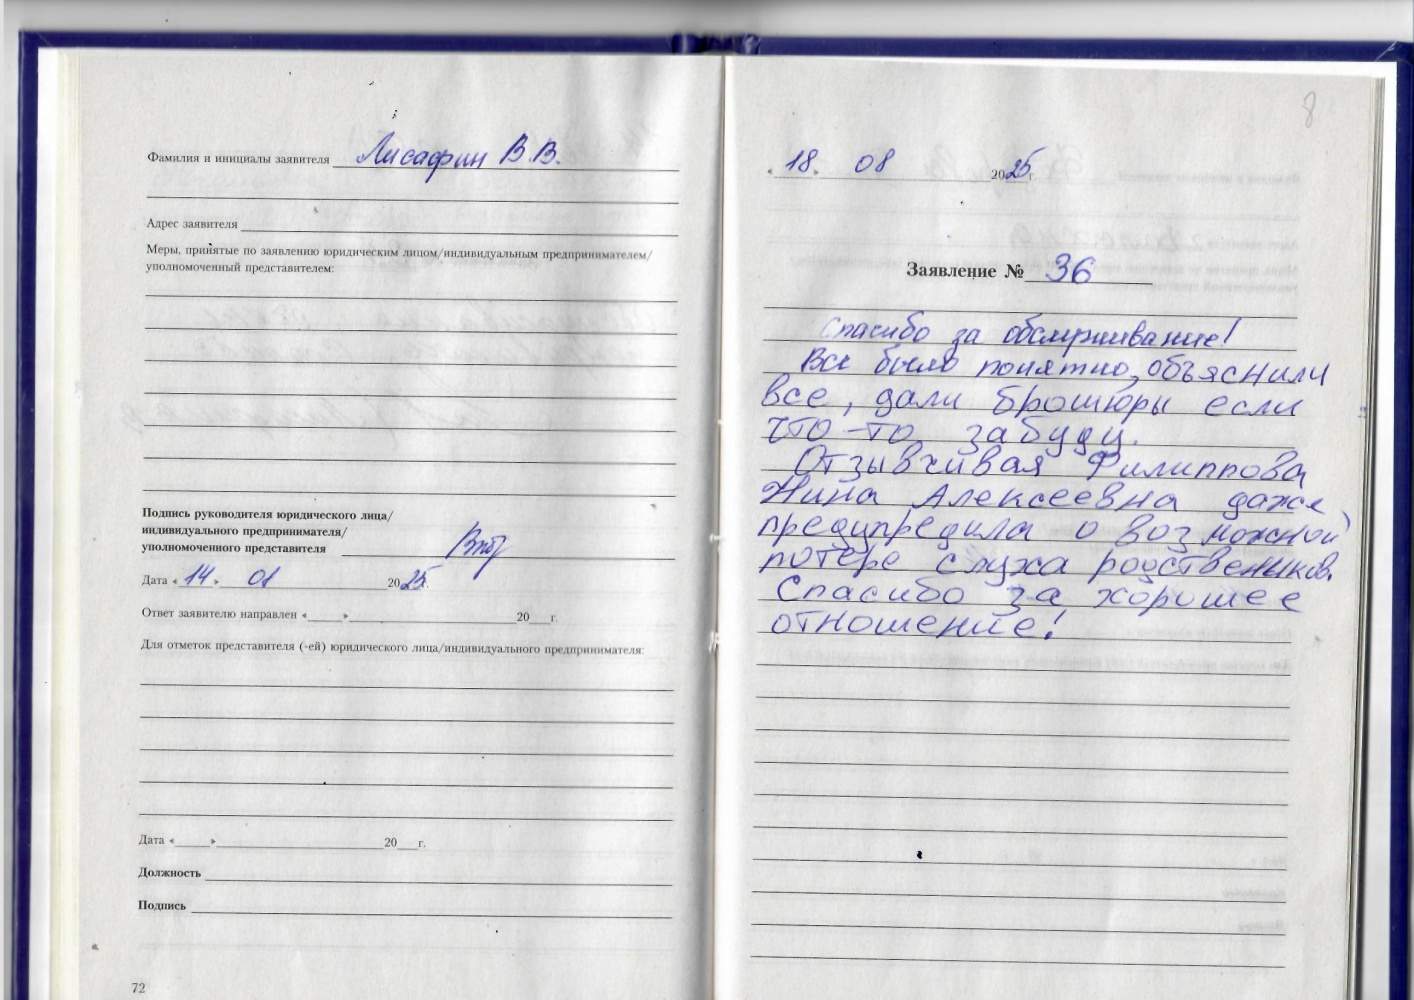 Фамилия и инициалы заявителя Лисафин В.В.
Адрес заявителя
Меры, принятые по заявлению юридическим лицом/индивидуальным предпринимателем/
уполномоченный представителем:
Подпись руководителя юридического лица/
индивидуального предпринимателя/
уполномоченного представителя
Дата « 14 » 01 2025г.
Ответ заявителю направлен « » 20 г.
Для отметок представителя (-ей) юридического лица/индивидуального предпринимателя:
Дата « » 20 г.
Должность
Подпись
72
8
« 18 » 08 2025г
Заявление № 36
Спасибо за обслуживание!
Все было понятно, объяснили
все, дали брошюры если
что-то забуду.
Отзывчивая Филиппова
Нина Алексеевна даже
предупредила о возможной
потере слуха родственников.
Спасибо за хорошее
отношение!